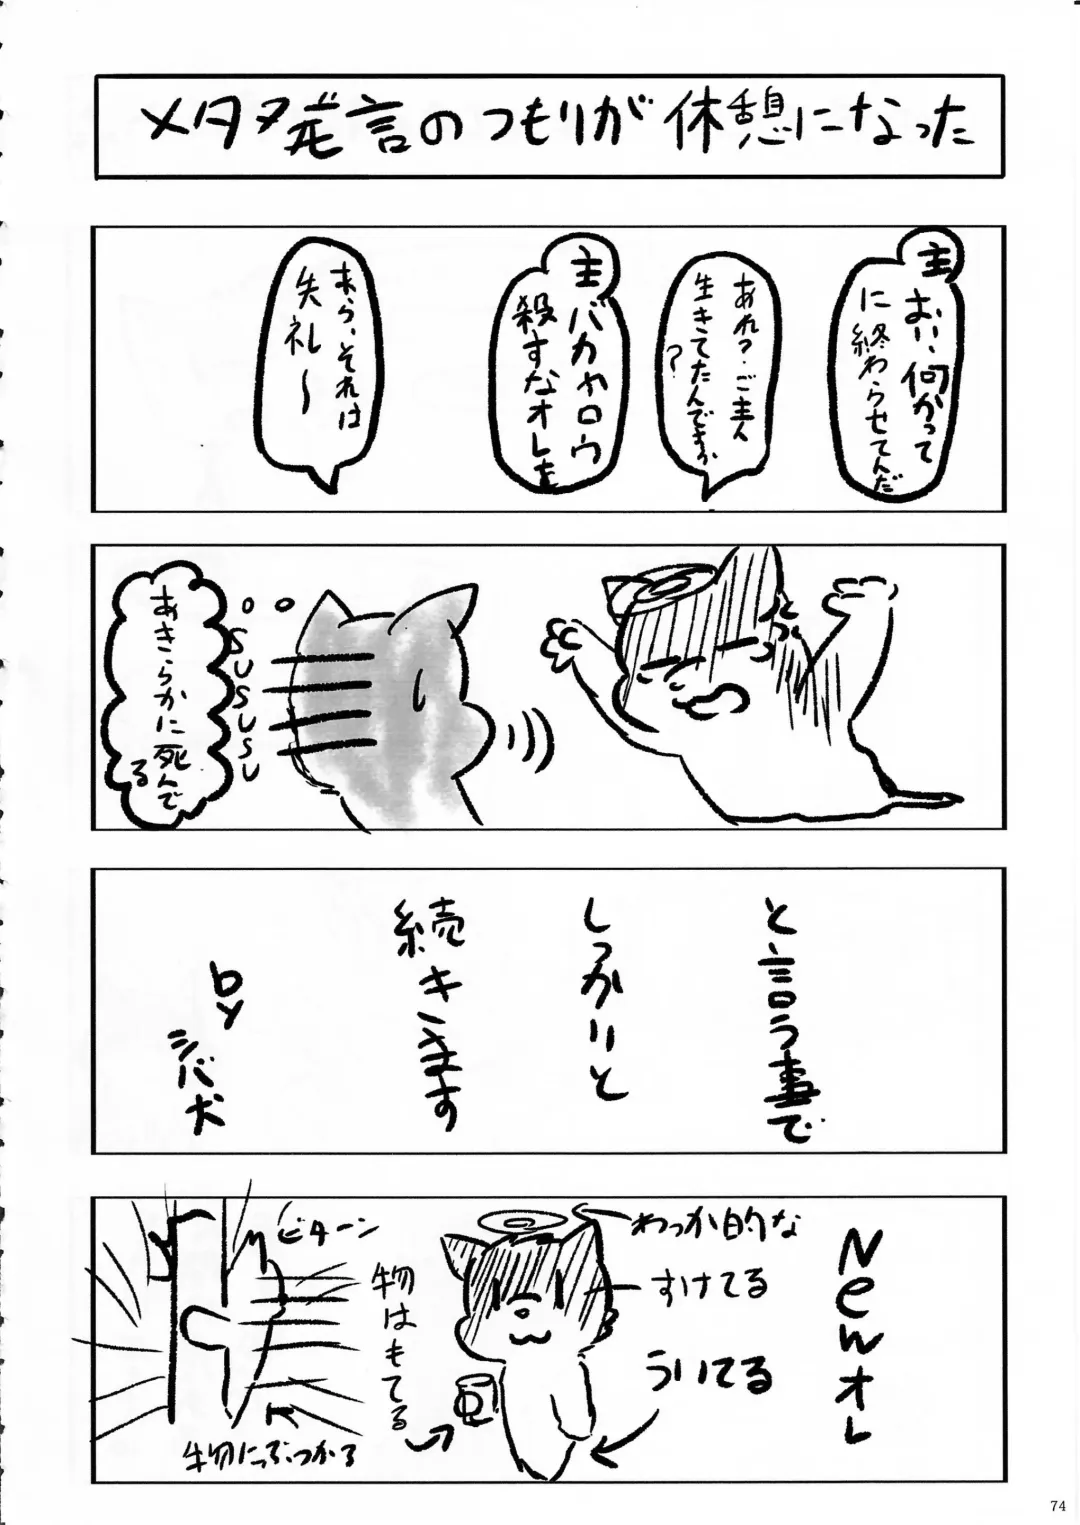 メタ発言のつもりが休憩になった
主
おい、何かって
に終わらせてんだ
あれ?ご主人
生きてたんですか
?
主
バカヤロウ
殺すなオレを
あら、それは
失礼〜
SUSUSUSU
あきらかに死んで
る
と言う事で
しっかりと
続キます
by
シバ犬
Newオレ
わっか的な
すけてる
ういてる
物はもてる
ビターン
物にぶつかる
74